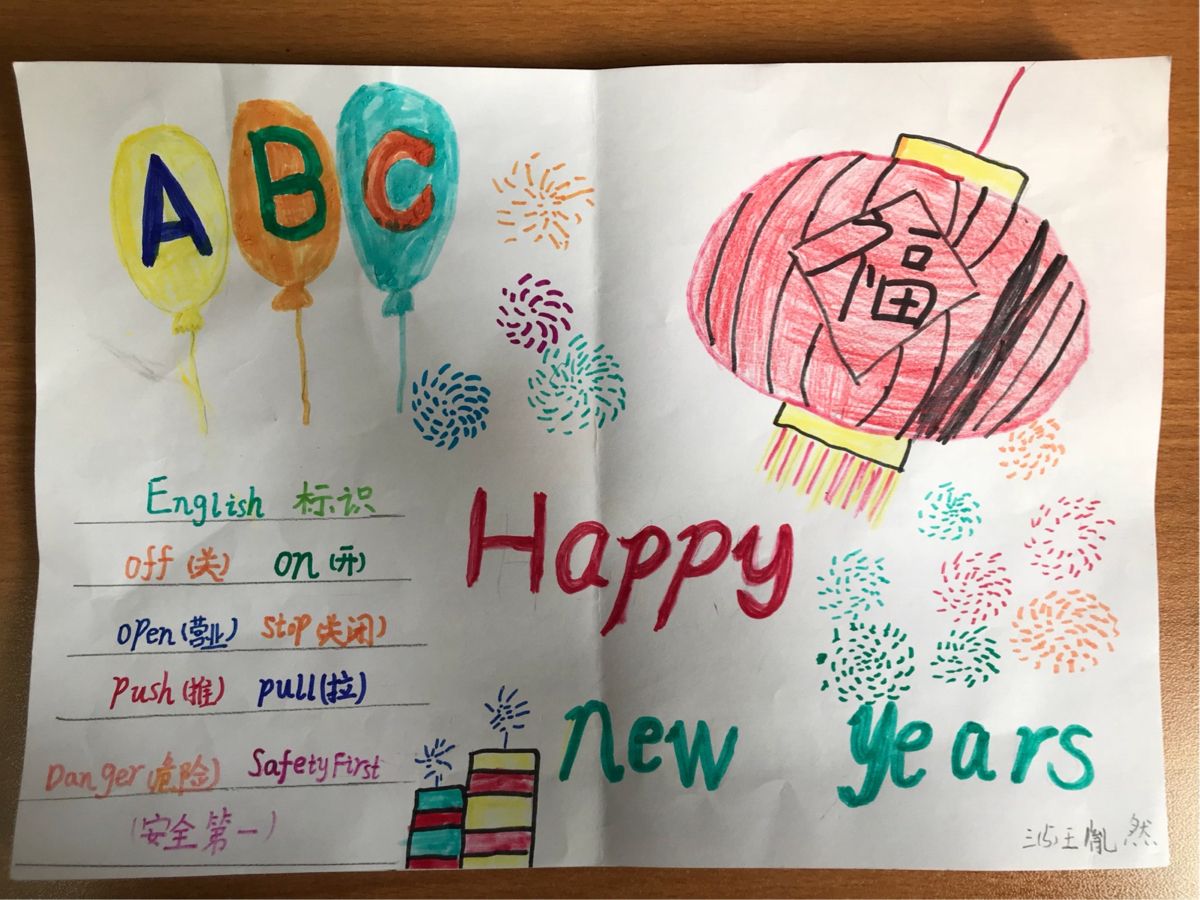 A B C
福
English 标识
off (关) on (开)
open (营业) stop (关闭)
push (推) pull (拉)
Danger (危险) Safety First
(安全第一)
Happy
new years
三(5)王胤然